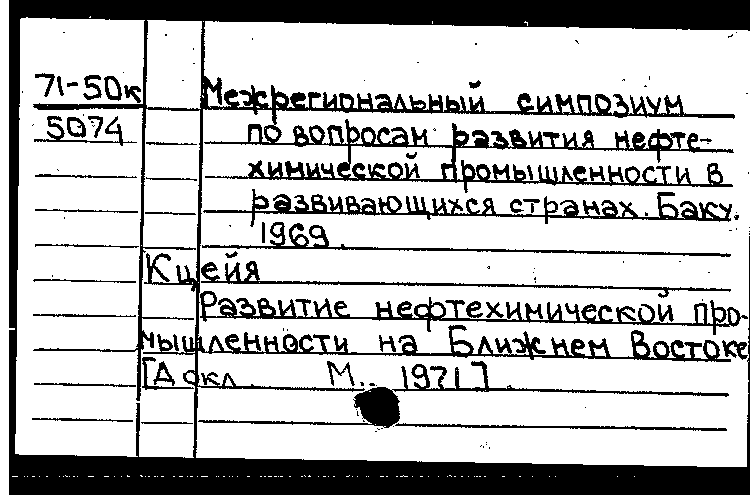 71-50к Межрегиональный симпозиум
5074 по вопросам развития нефте-
химической промышленности в
развивающихся странах. Баку.
1969.
Кцейя
Развитие нефтехимической про-
мышленности на Ближнем Востоке
[Докл. М., 1971].